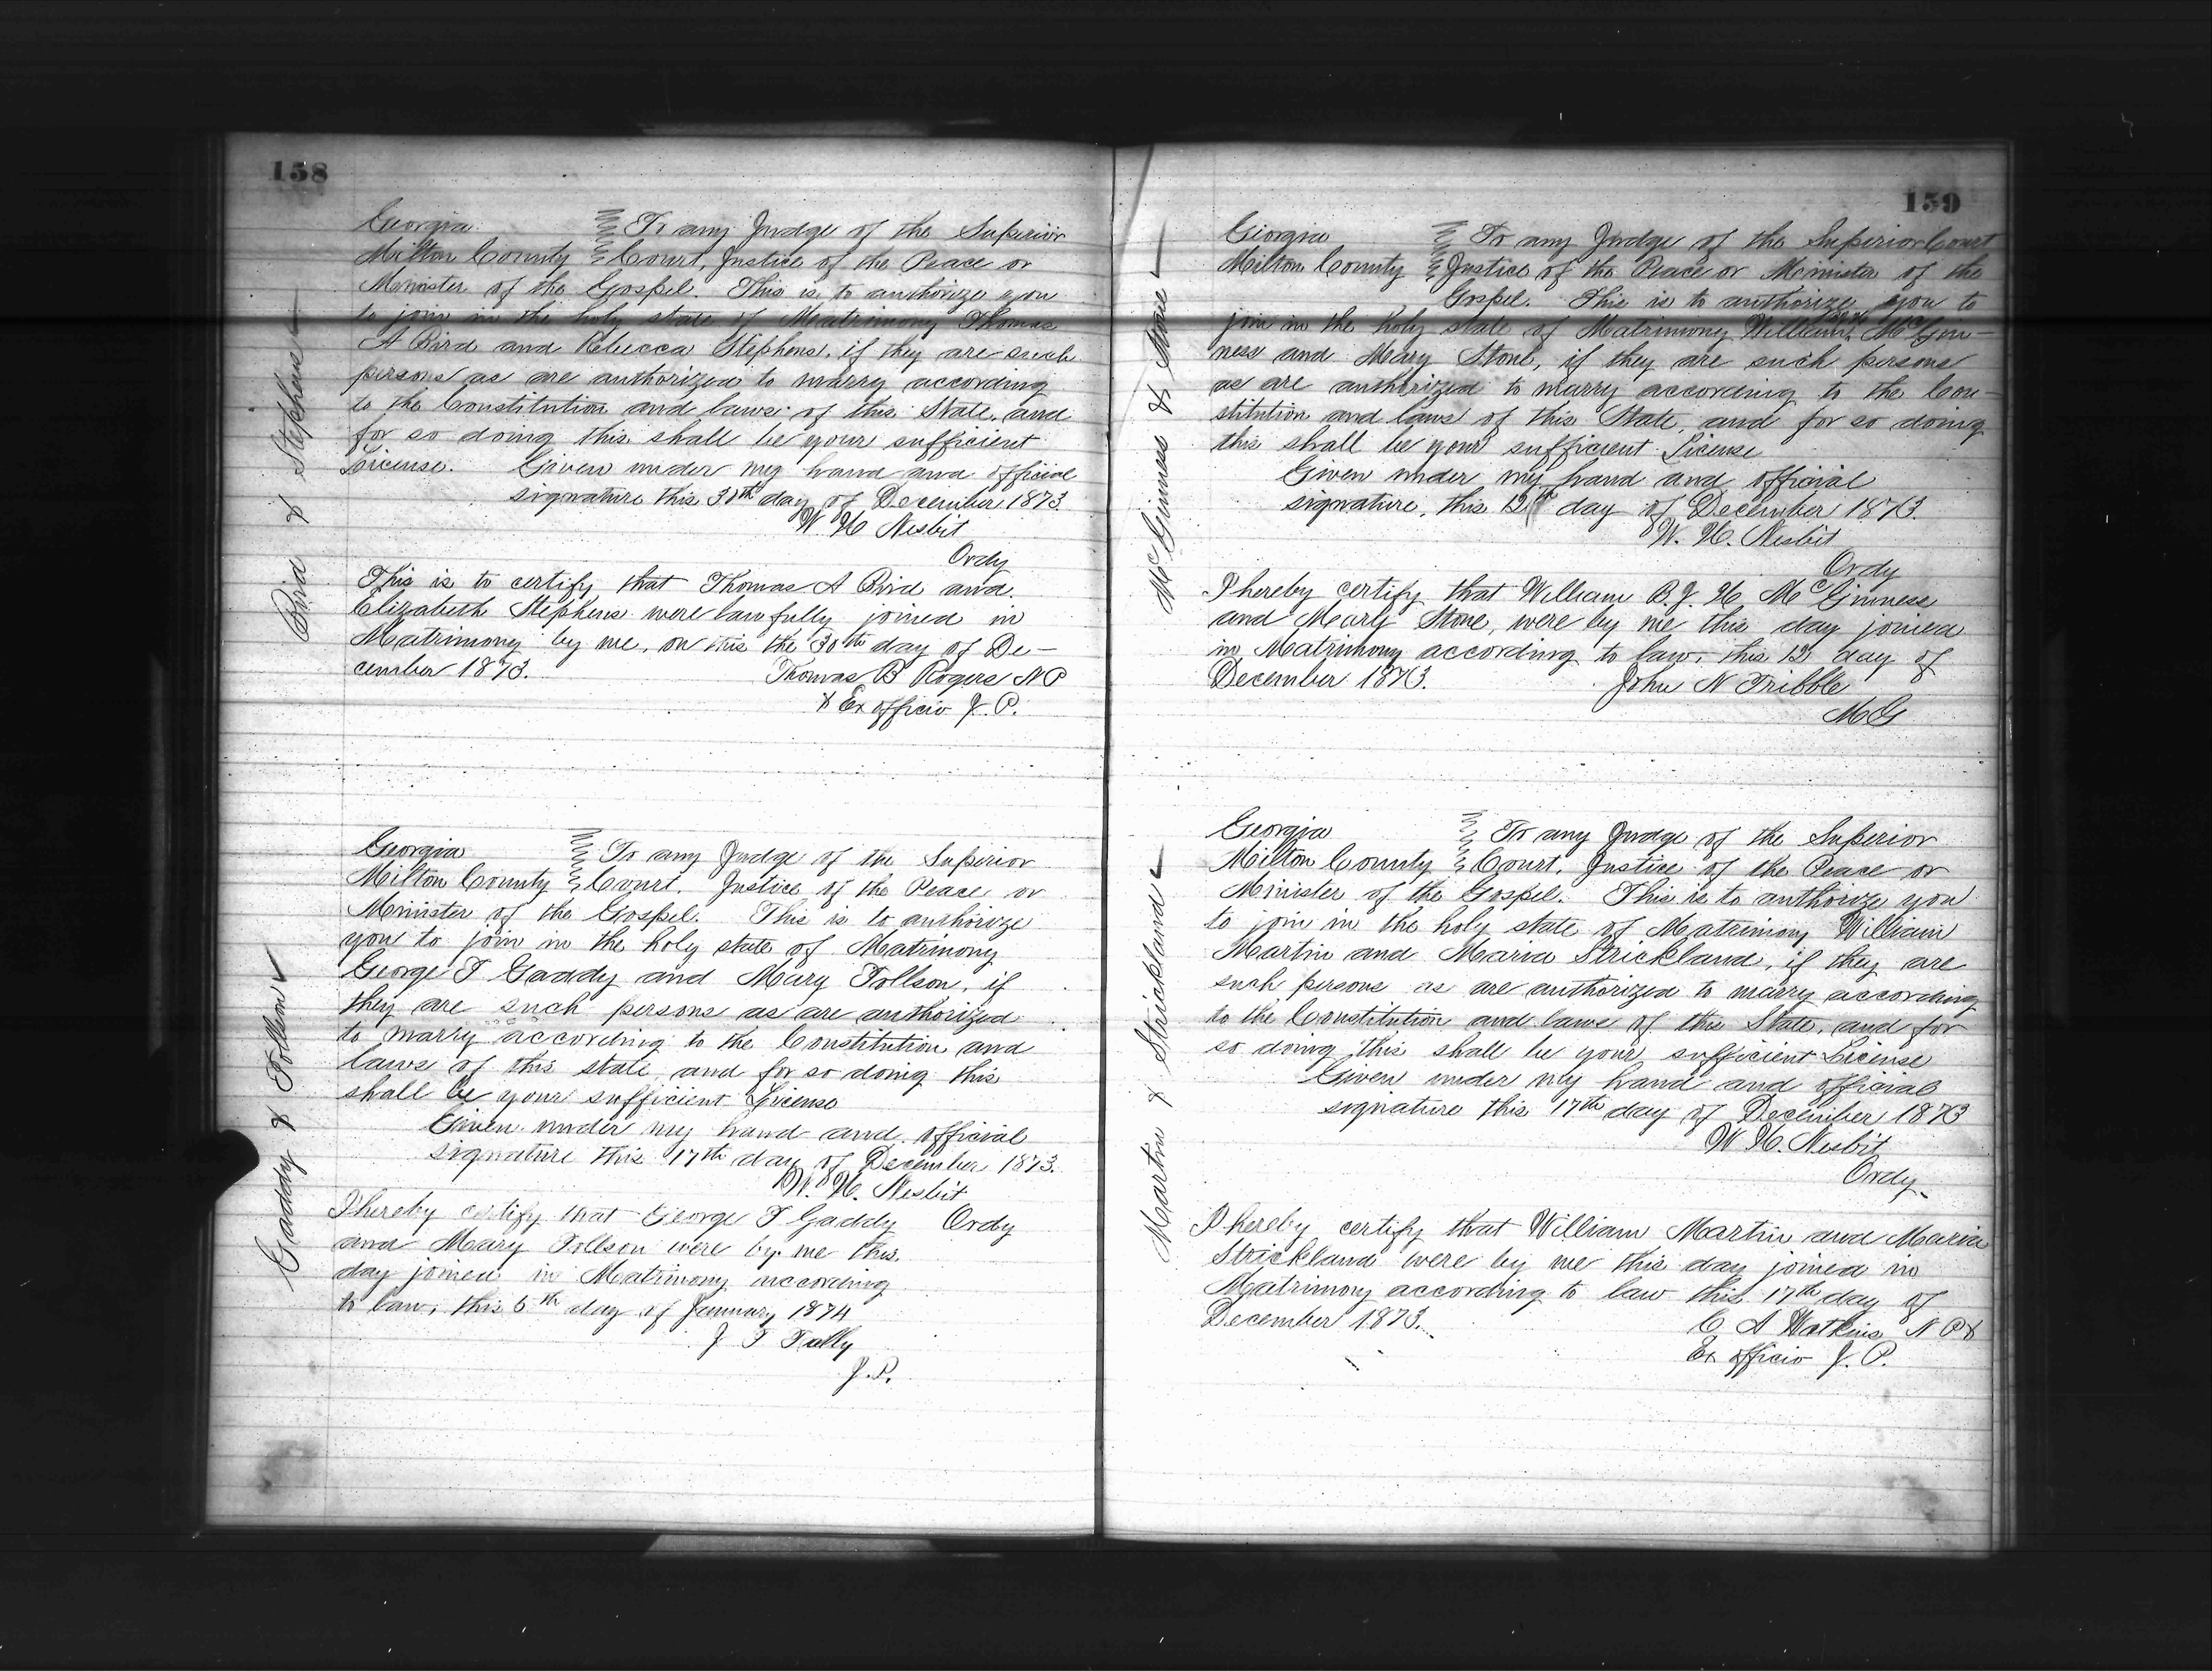 158
Bird & Stephens
Georgia To any Judge of the Superior
Milton County Court, Justice of the Peace or
Minister of the Gospel. This is to authorize you
to join in the holy state of Matrimony Thomas
A Bird and Rebecca Stephens, if they are such
persons as are authorized to marry according
to the Constitution and laws of this State, and
for so doing this shall be your sufficient
License. Given under my hand and official
signature this 30th day of December 1873.
W. H. Nesbit
Ordy
This is to certify that Thomas A Bird and
Elizabeth Stephens were lawfully joined in
Matrimony by me, on this the 30th day of De-
cember 1873. Thomas B Rogers N P
& Ex officio J. P.
Gaddy & Tollson
Georgia To any Judge of the Superior
Milton County Court. Justice of the Peace or
Minister of the Gospel. This is to authorize
you to join in the holy state of Matrimony
George T Gaddy and Mary Tollson, if
they are such persons as are authorized
to marry according to the Constitution and
laws of this state, and for so doing this
shall be your sufficient License
Given under my hand and official
signature this 17th day of December 1873.
W. H. Nesbit
I hereby certify that George T Gaddy Ordy
and Mary Tollson were by me this
day joined in Matrimony according
to law, this 6th day of January 1874
J T Tally
J. P.
159
McGinness & Stone
Georgia To any Judge of the Superior Court
Milton County Justice of the Peace or Minister of the
Gospel. This is to authorize you to
join in the holy state of Matrimony William McGin-
ness and Mary Stone, if they are such persons
as are authorized to marry according to the Con-
stitution and laws of this State, and for so doing
this shall be your sufficient License
Given under my hand and official
signature, this 12th day of December 1873.
W. H. Nesbit
Ordy
I hereby certify that William B. J. H McGinness
and Mary Stone, were by me this day joined
in Matrimony according to law, this 12 day of
December 1873. John N Tribble
M G
Martin & Strickland
Georgia To any Judge of the Superior
Milton County Court, Justice of the Peace or
Minister of the Gospel. This is to authorize you
to join in the holy state of Matrimony William
Martin and Maria Strickland, if they are
such persons as are authorized to marry according
to the Constitution and laws of this State, and for
so doing this shall be your sufficient License
Given under my hand and official
signature this 17th day of December 1873
W H. Nesbit
Ordy.
I hereby certify that William Martin and Maria
Strickland were by me this day joined in
Matrimony according to law this 17th day of
December 1873. C A Watkins N P &
Ex officio J. P.